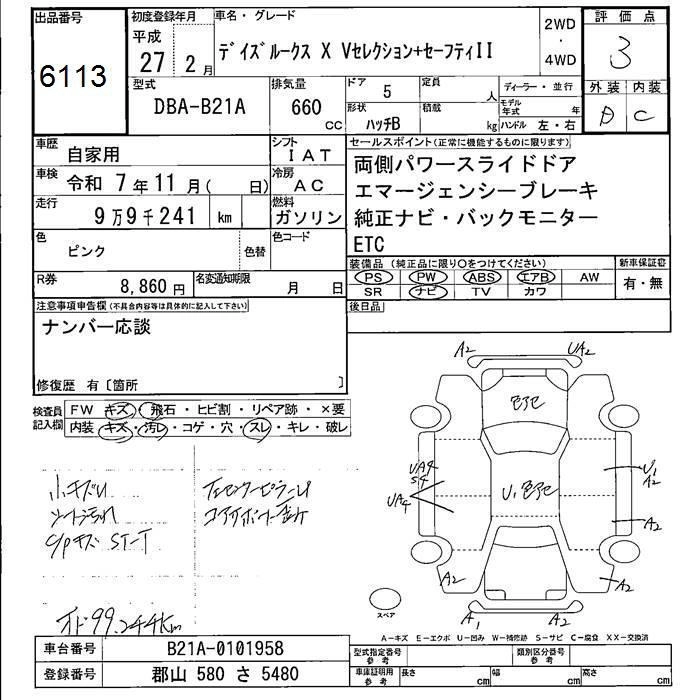 出品番号
6113
初度登録年月
平成
27 2 月
車名・グレード
デイズルークス X Vセレクション+セーフティII
2WD
・
4WD
評価点
3
外装 内装
D C
型式
DBA-B21A
排気量
660
CC
ドア
5
形状
ハッチB
定員
人
積載
kg
ディーラー・並行
モデル年式 年
ハンドル 左・右
車歴
自家用
シフト
IAT
車検
令和 7年11月( 日)
冷房
AC
走行
9万9千241 km
燃料
ガソリン
色
ピンク
色替
色コード
R券
8,860円
名変通知期限
月 日
セールスポイント(正常に機能するものに限ります)
両側パワースライドドア
エマージェンシーブレーキ
純正ナビ・バックモニター
ETC
装備品(純正品に限り○をつけてください)
PS PW ABS エアB AW
SR ナビ TV カワ
新車保証書
有・無
後日品
注意事項申告欄(不具合内容等は具体的に記入して下さい)
ナンバー応談
修復歴 有〔箇所 〕
検査員
記入欄
FW キズ・飛石・ヒビ割・リペア跡・×要
内装 キズ・汚レ・コゲ・穴・スレ・キレ・破レ
小キズU
シート汚れ
C/Pキズ ST-T
コアサポート歪み
オド99,244km
A2 UA2
色アセ
UA4
S4
UA4
U1 色アセ
U1
A2
A2
A2 A2
A1 A2
スペア
A-キズ E-エクボ U-凹み W-補修跡 S-サビ C-腐食 XX-交換済
車台番号
B21A-0101958
登録番号
郡山 580 さ 5480
型式指定番号
参考
類別区分番号
参考
車庫証明用
参考
長さ cm 幅 cm 高さ cm